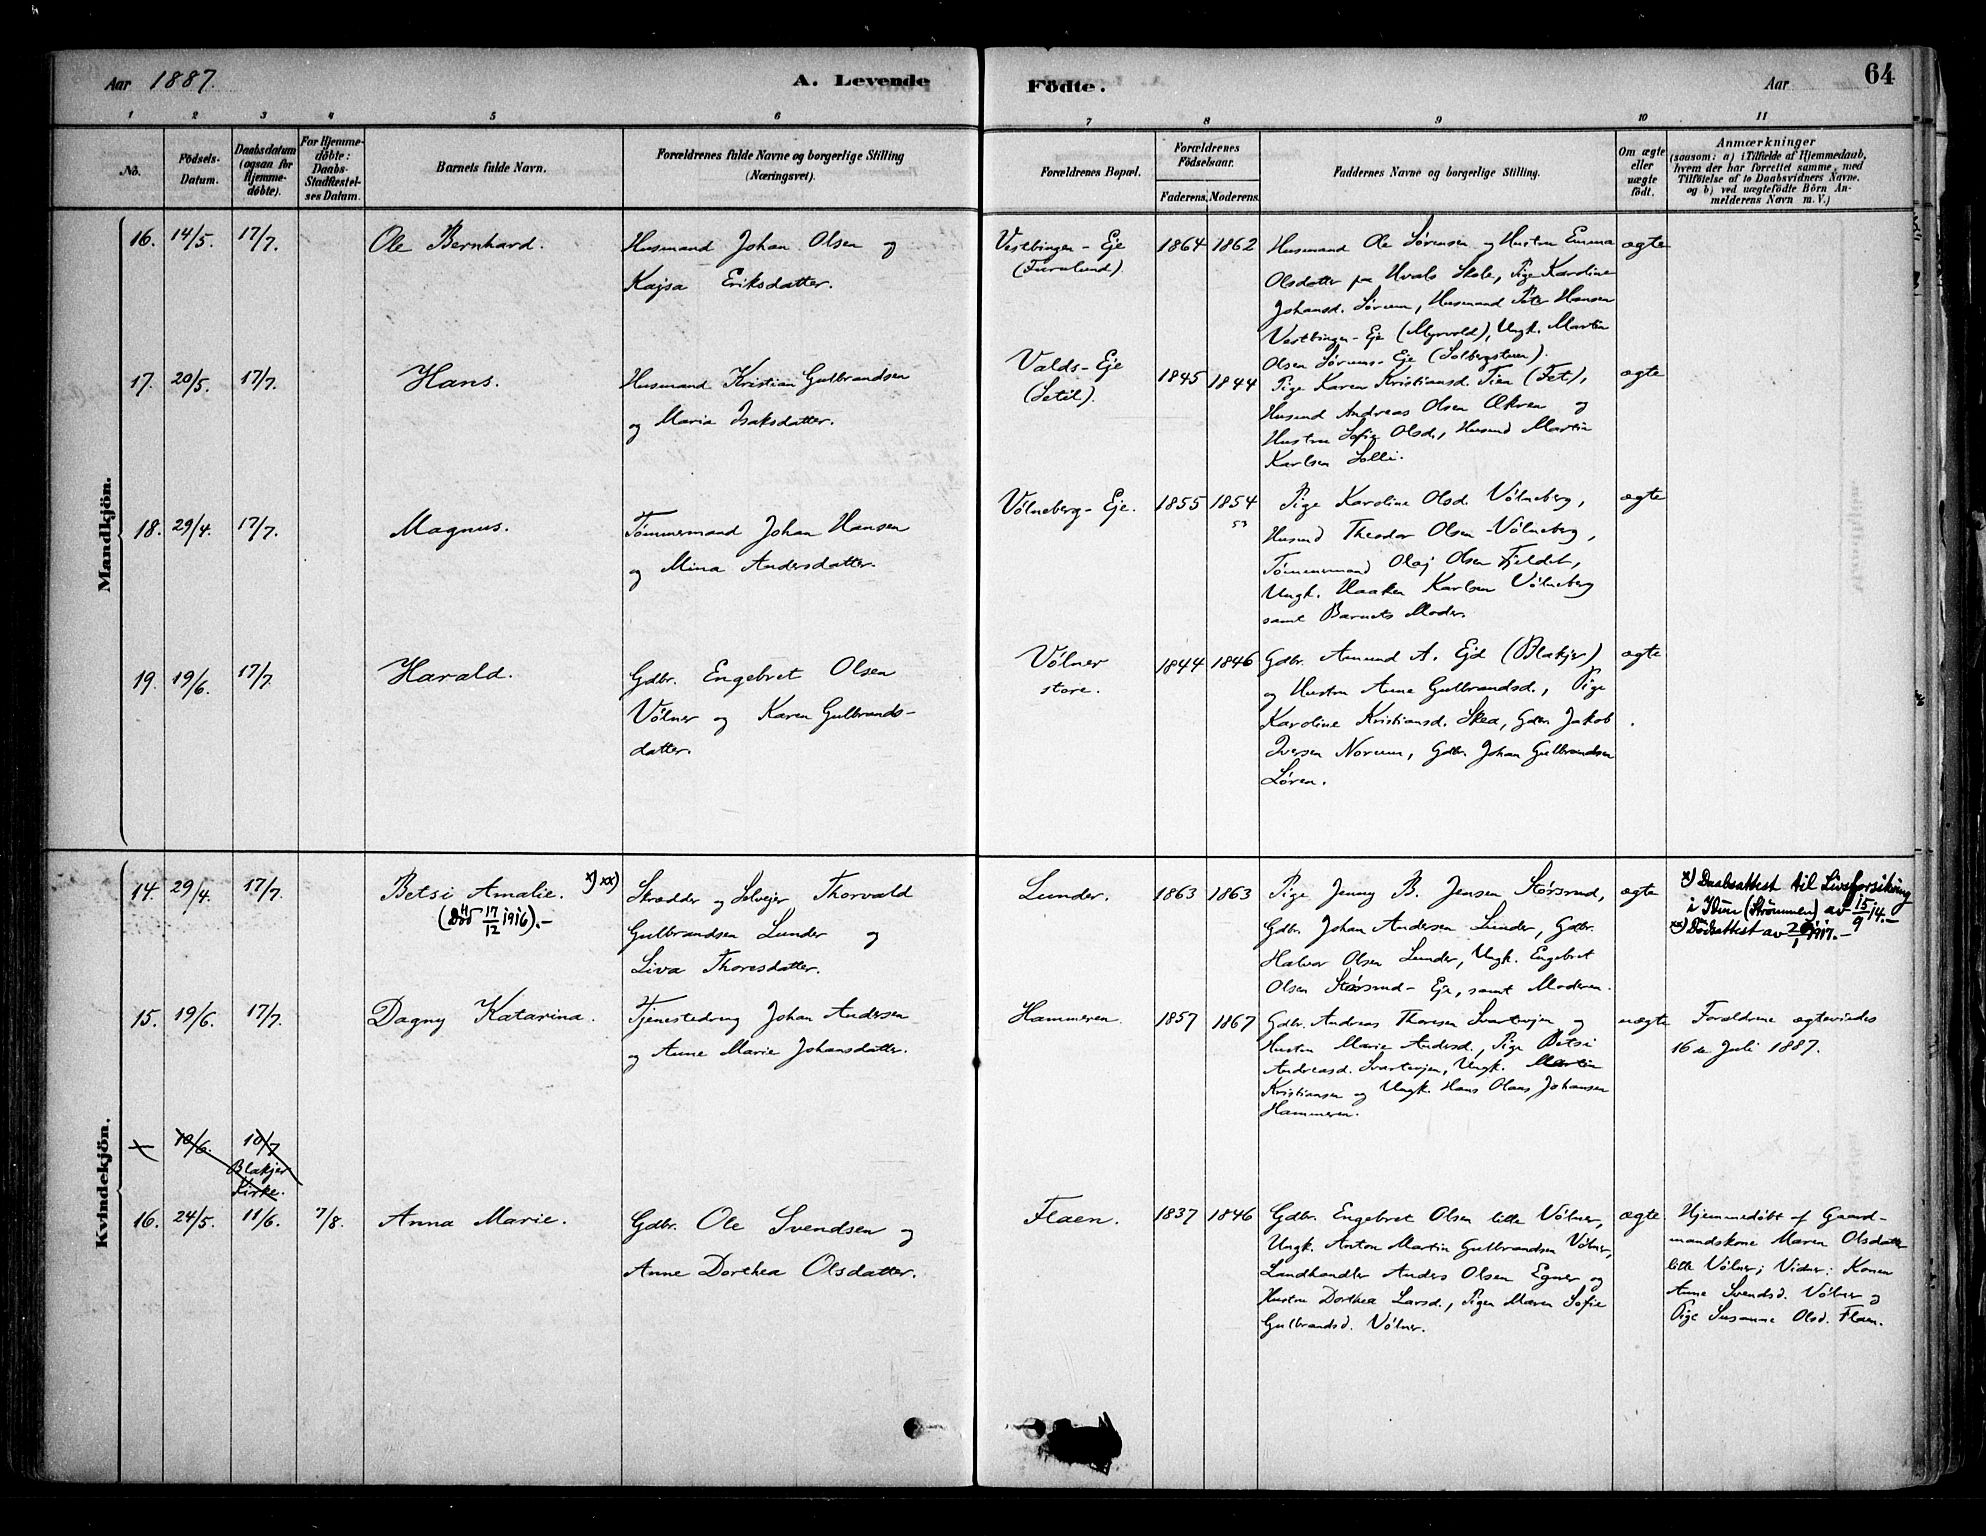 Aar 1887.
A. Levende
Födte.
Aar
64
1
2
3
4
5
6
7
8
9
10
11
No.
Födsels-
Datum.
Daabsdatum
(ogsaa for
Hjemme-
döbte).
For Hjemme-
döbte:
Daabs-
Stadfæstel-
ses Datum.
Barnets fulde Navn.
Forældrenes fulde Navne og borgerlige Stilling
(Næringsvei).
Forældrenes Bopæl.
Forældrenes
Födselsaar.
Faderens.
Moderens.
Faddernes Navne og borgerlige Stilling.
Om ægte
eller
uægte
födt.
Anmærkninger
(saasom: a) i Tilfælde af Hjemmedaab,
hvem der har forrettet samme, med
Tilföielse af to Daabsvidners Navne,
og b) ved uægtefödte Börn An-
melderens Navn m. V.)
Mandkjön.
16. 14/5. 17/7.
Ole Bernhard.
Husmand Johan Olsen og
Kajsa Eriksdatter.
Vestbingen-Eje
(Furulund).
1864 1862
Husmand Ole Sørensen og Hustru Emma
Olsdatter paa Hvals Skole, Pige Karoline
Johansd. Sørum, Husmand Peter Hansen
Vestbingen-Eje (Myrvold), Ungk. Martin
Olsen Sørums-Eje (Solbergstuen).
ægte
17. 20/5. 17/7.
Hans.
Husmand Kristian Gulbrandsen
og Maria Isaksdatter.
Valds-Eje
(Setil).
1845 1844
Pige Karen Kristiansd. Tien (Fet),
Husmd Andreas Olsen Ekren og
Hustru Sofie Olsd., Husmd Martin
Karlsen Solli.
ægte
18. 29/4. 17/7.
Magnus.
Tømmermand Johan Hansen
og Mina Andersdatter.
Vølneberg-Eje.
1855 1854
53
Pige Karoline Olsd. Vølneberg,
Husmd Theodor Olsen Vølneberg,
Tømmermand Olaj Olsen Fjeldet,
Ungk. Haaken Karlsen Vølneberg
samt Barnets Moder.
ægte
19. 19/6. 17/7.
Harald.
Gdbr. Engebret Olsen
Vølner og Karen Gulbrands-
datter.
Vølner
store.
1844 1846
Gdbr. Amund A. Ejd (Blakjer)
og Hustru Anne Gulbrandsd., Pige
Karoline Kristiansd. Skea, Gdbr Jakob
Iversen Norum, Gdbr. Johan Gulbrandsen
Løren.
ægte
Kvindekjön.
14. 29/4. 17/7.
Betsi Amalie. x) xx)
(Död 17/12 1916).-
Skrædder og Selvejer Thorvald
Gulbrandsen Lunder og
Liva Thoresdatter.
Lunder.
1863 1863
Pige Jenny B. Jensen Størsrud,
Gdbr. Johan Andersen Lunder, Gdbr.
Halvor Olsen Lunder, Ungk. Engebret
Olsen Størsrud-Eje, samt Moderen.
ægte
x) Daabsattest til Livsforsikring
i Idun (Strømmen) av 15/9 14.-
xx) Dödsattest av 20/1 1917.-
15. 19/6. 17/7.
Dagny Katarina.
Tjenestedreng Johan Andersen
og Anne Marie Johansdatter.
Hammeren.
1857 1867
Gdbr. Andreas Thoresen Svartevjen og
Hustru Marie Andersd., Pige Betsi
Andreasd. Svartevjen, Ungk. Martin
Kristiansen og Ungk. Hans Olaus Johansen
Hammeren.
uægte
Forældrene ægteviedes
16de Juli 1887.
10/6. 10/7
Blakjer
Kirke.
16. 24/5. 11/6. 7/8.
Anna Marie.
Gdbr. Ole Svendsen og
Anne Dorthea Olsdatter.
Flaen.
1837 1846
Gdbr. Engebret Olsen lille Vølner,
Ungk. Anton Martin Gulbrandsen Vølner,
Landhandler Anders Olsen Egner og
Hustru Dorthea Larsd., Pigen Maren Sofie
Gulbrandsd. Vølner.
ægte
Hjemmedøbt af Gaard-
mandskone Maren Olsdatter
lille Vølner; Vidner: Konen
Anne Svendsd. Vølner og
Pige Susanne Olsd. Flaen.